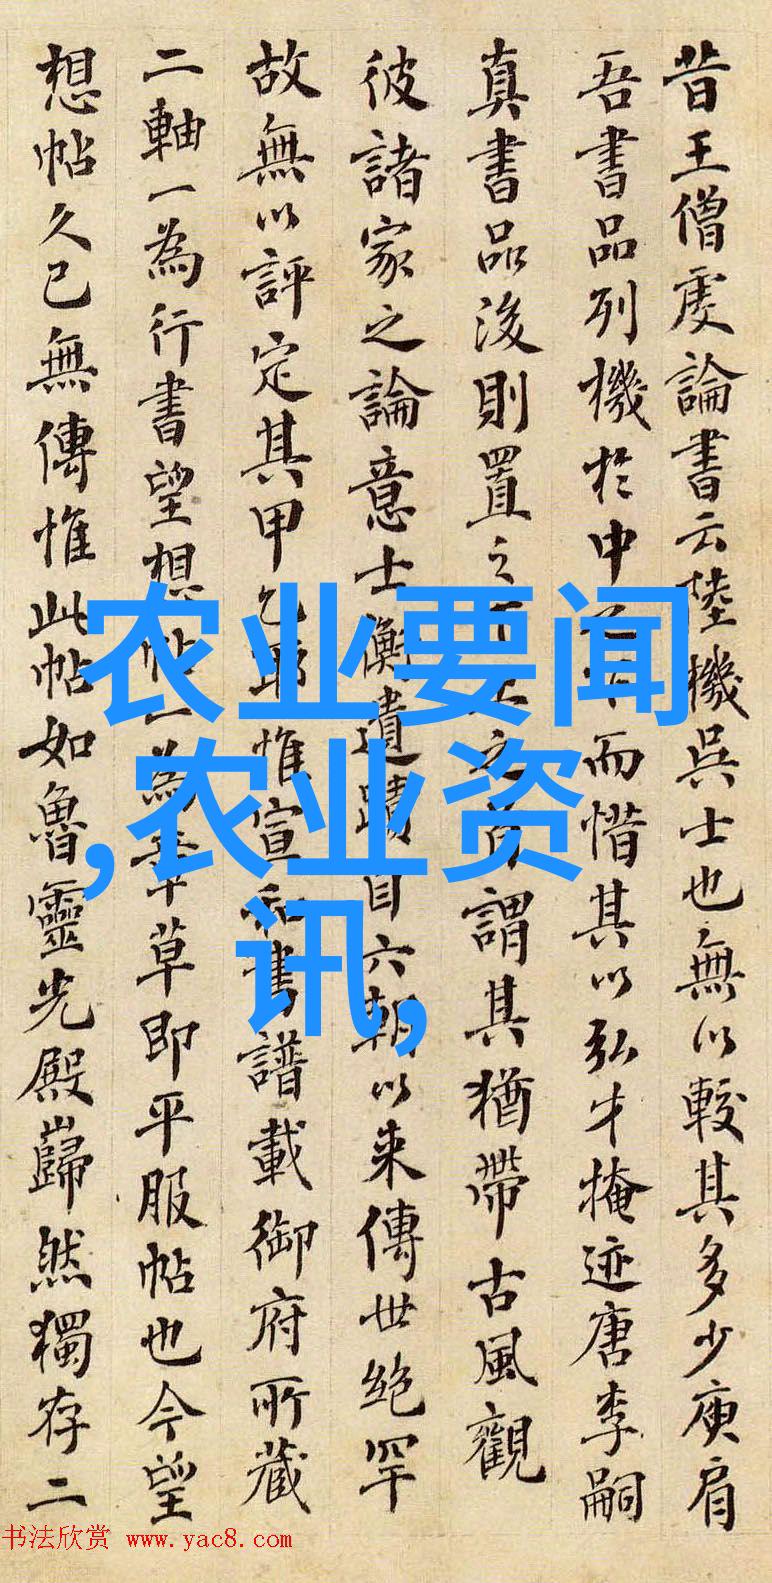 昔王僧虔論書云陸機吳士也無以較其多少庾肩
吾書品列機於中而惜其以弘才掩迹唐李嗣
真書品後則置之下上之首謂其猶帶古風觀
彼諸家之論意士衡遺蹟自六朝以来傳世絶罕
故無以評定其甲乙耶惟宣和書譜載御府所藏
二軸一為行書望想帖一為章草即平服帖也今望
想帖久已無傳惟此帖如魯靈光殿巋然獨存二
农业要闻
,农业资
讯,
书法欣赏 www.yac8.com